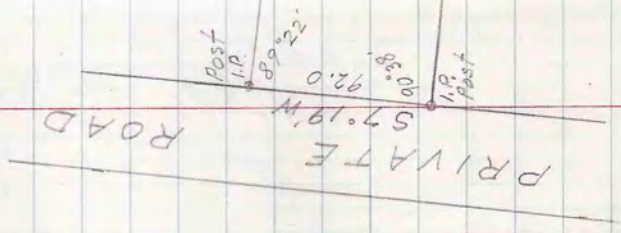 Post
I.P.
89°22'
92.0
90°38'
I.P.
Post
S 7°19'W
PRIVATE ROAD